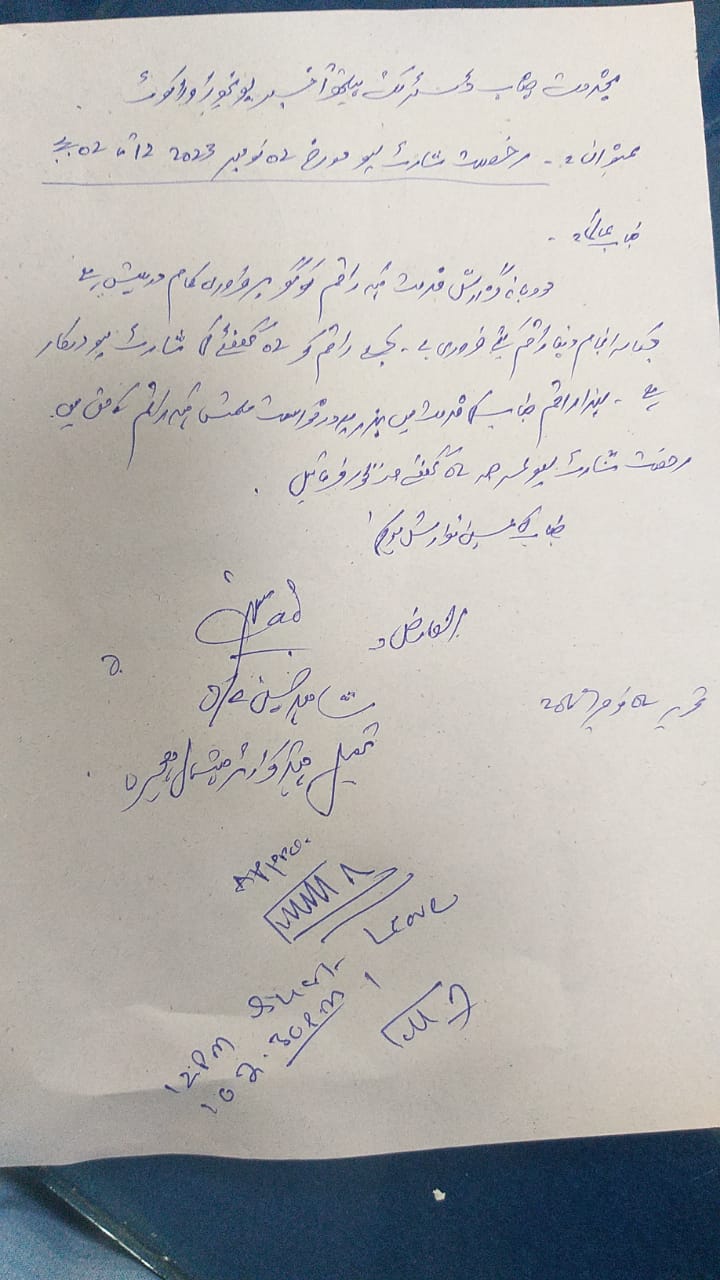 بخدمت جناب ڈسٹرکٹ ہیلتھ آفیسر پونچھ راولاکوٹ
عنوان :۔ رخصت شارٹ لیو مورخہ 02 نومبر 2023 12 تا 02 بجے
جناب عالی!
مودبانہ گزارش خدمت ہیکہ راقم کو گھر پر ضروری کام درپیش ہے
جسکا سر انجام دینا راقم کیلئے ضروری ہے۔ جسکے لیے راقم کو 02 گھنٹے کی شارٹ لیو درکار
ہے۔ لہذا راقم جناب کی خدمت میں بذریعہ درخواست ملتمس ہیکہ راقم کے حق میں
رخصت شارٹ لیو عرصہ 02 گھنٹے منظور فرمائیں
جناب کی عین نوازش ہوگی
العارض
شاہد حسین
تحریر 02 نومبر
ہیڈ کوارٹر
Appro.
Short Leave
12 PM
to 2.30 PM